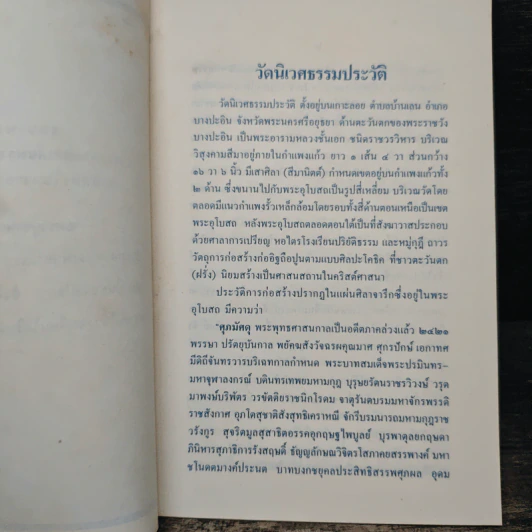 วัดนิเวศธรรมประวัติ
วัดนิเวศธรรมประวัติ ตั้งอยู่บนเกาะลอย ตำบลบ้านเลน อำเภอ
บางปะอิน จังหวัดพระนครศรีอยุธยา ด้านตะวันตกของพระราชวัง
บางปะอิน เป็นพระอารามหลวงชั้นเอก ชนิดราชวรวิหาร บริเวณ
วิสุงคามสีมาอยู่ภายในกำแพงแก้ว ยาว ๑ เส้น ๔ วา ส่วนกว้าง
๑๖ วา ๖ นิ้ว มีเสาศิลา (สีมานิตต์) กำหนดเขตอยู่บนกำแพงแก้วทั้ง
๒ ด้าน ซึ่งขนานไปกับพระอุโบสถเป็นรูปสี่เหลี่ยม บริเวณวัดโดย
ตลอดมีแนวกำแพงรั้วเหล็กล้อมโดยรอบทั้งสี่ด้านตอนเหนือเป็นเขต
พระอุโบสถ หลังพระอุโบสถตลอดตอนใต้เป็นที่สังฆาวาสประกอบ
ด้วยศาลาการเปรียญ หอไตรโรงเรียนปริยัติธรรม และหมู่กุฎี ถาวร
วัตถุการก่อสร้างก่ออิฐถือปูนตามแบบศิลปะโคธิค ที่ชาวตะวันตก
(ฝรั่ง) นิยมสร้างเป็นศาสนสถานในคริสต์ศาสนา
ประวัติการก่อสร้างปรากฏในแผ่นศิลาจารึกซึ่งอยู่ในพระ
อุโบสถ มีความว่า
"ศุภมัศดุ พระพุทธศาสนกาลเป็นอดีตภาคล่วงแล้ว ๒๔๒๑
พรรษา ปรัตยุบันกาล พยัคฆสังวัจฉรผคุณมาศ ศุกรปักษ์ เอกาทศ
มีดิถีจันทรวารบริเฉทกาลกำหนด พระบาทสมเด็จพระปรมินทร-
มหาจุฬาลงกรณ์ บดินทรเทพยมหามกุฎ บุรุษยรัตนราชรวิวงษ์ วรุต
มาพงษ์บริพัตร วรขัตติยราชนิกโรดม จาตุรันตบรมมหาจักรพรรดิ
ราชสังกาศ อุภโตสุชาติสังสุทธิเคราหณี จักรีบรมนารถมหามกุฎราช
วรังกูร สุจริตมูลสุสาธิตอรรคอุกฤษฐไพบูลย์ บุรพาดุลยกฤษดา
ภินิหารสุภาธิการรังสฤษดิ์ ธัญญลักษณวิจิตรโสภาคยสรรพางค์ มหา
ชโนตตมางค์ประนต บาทบงกชยุคลประสิทธิสรรพศุภผล อุดม